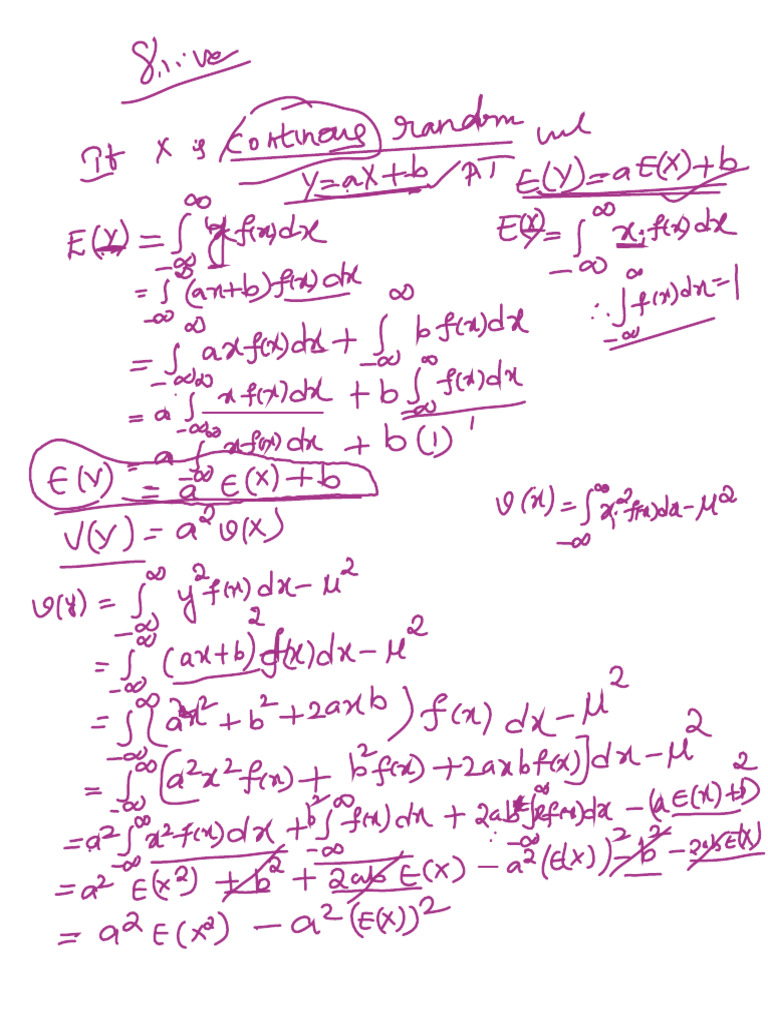 If X is continous random
Y=aX+b PT E(Y)=aE(X)+b
E(Y) = ∫_{-∞}^{∞} y f(x)dx
E(X) = ∫_{-∞}^{∞} x. f(x)dx
= ∫_{-∞}^{∞} (ax+b) f(x) dx
∴ ∫_{-∞}^{∞} f(x)dx=1
= ∫_{-∞}^{∞} axf(x)dx + ∫_{-∞}^{∞} b f(x)dx
= a ∫_{-∞}^{∞} x f(x)dx + b ∫_{-∞}^{∞} f(x)dx
= a ∫_{-∞}^{∞} x f(x) dx + b(1)
E(Y) = a E(X)+b
V(Y) = a² V(X)
V(x) = ∫_{-∞}^{∞} x.² f(x)dx-μ²
V(Y) = ∫_{-∞}^{∞} y² f(x) dx-μ²
= ∫_{-∞}^{∞} (ax+b)² f(x)dx-μ²
= ∫_{-∞}^{∞} (a²x²+b²+2axb) f(x) dx-μ²
= ∫_{-∞}^{∞} [a²x²f(x)+b²f(x)+2axbf(x)]dx-μ²
= a² ∫_{-∞}^{∞} x²f(x)dx + b² ∫_{-∞}^{∞} f(x)dx + 2ab ∫_{-∞}^{∞} xf(x)dx - (aE(X)+b)²
= a² E(X²) + b² + 2ab E(X) - a²(E(X))² - b² - 2abE(X)
= a² E(X²) - a² (E(X))²